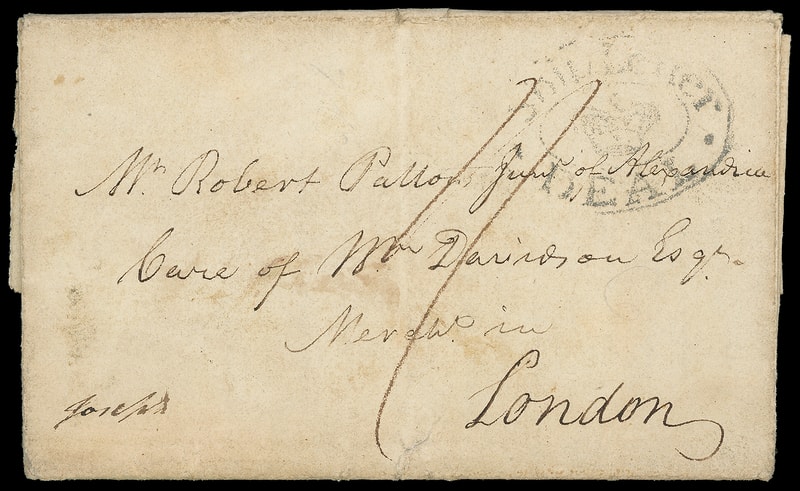 SHIP LETTER
DEAL
Mr. Robert Patton Junr. of Alexandria
Care of Wm Davidson Esqr.
Mercht. in
London
Joseph